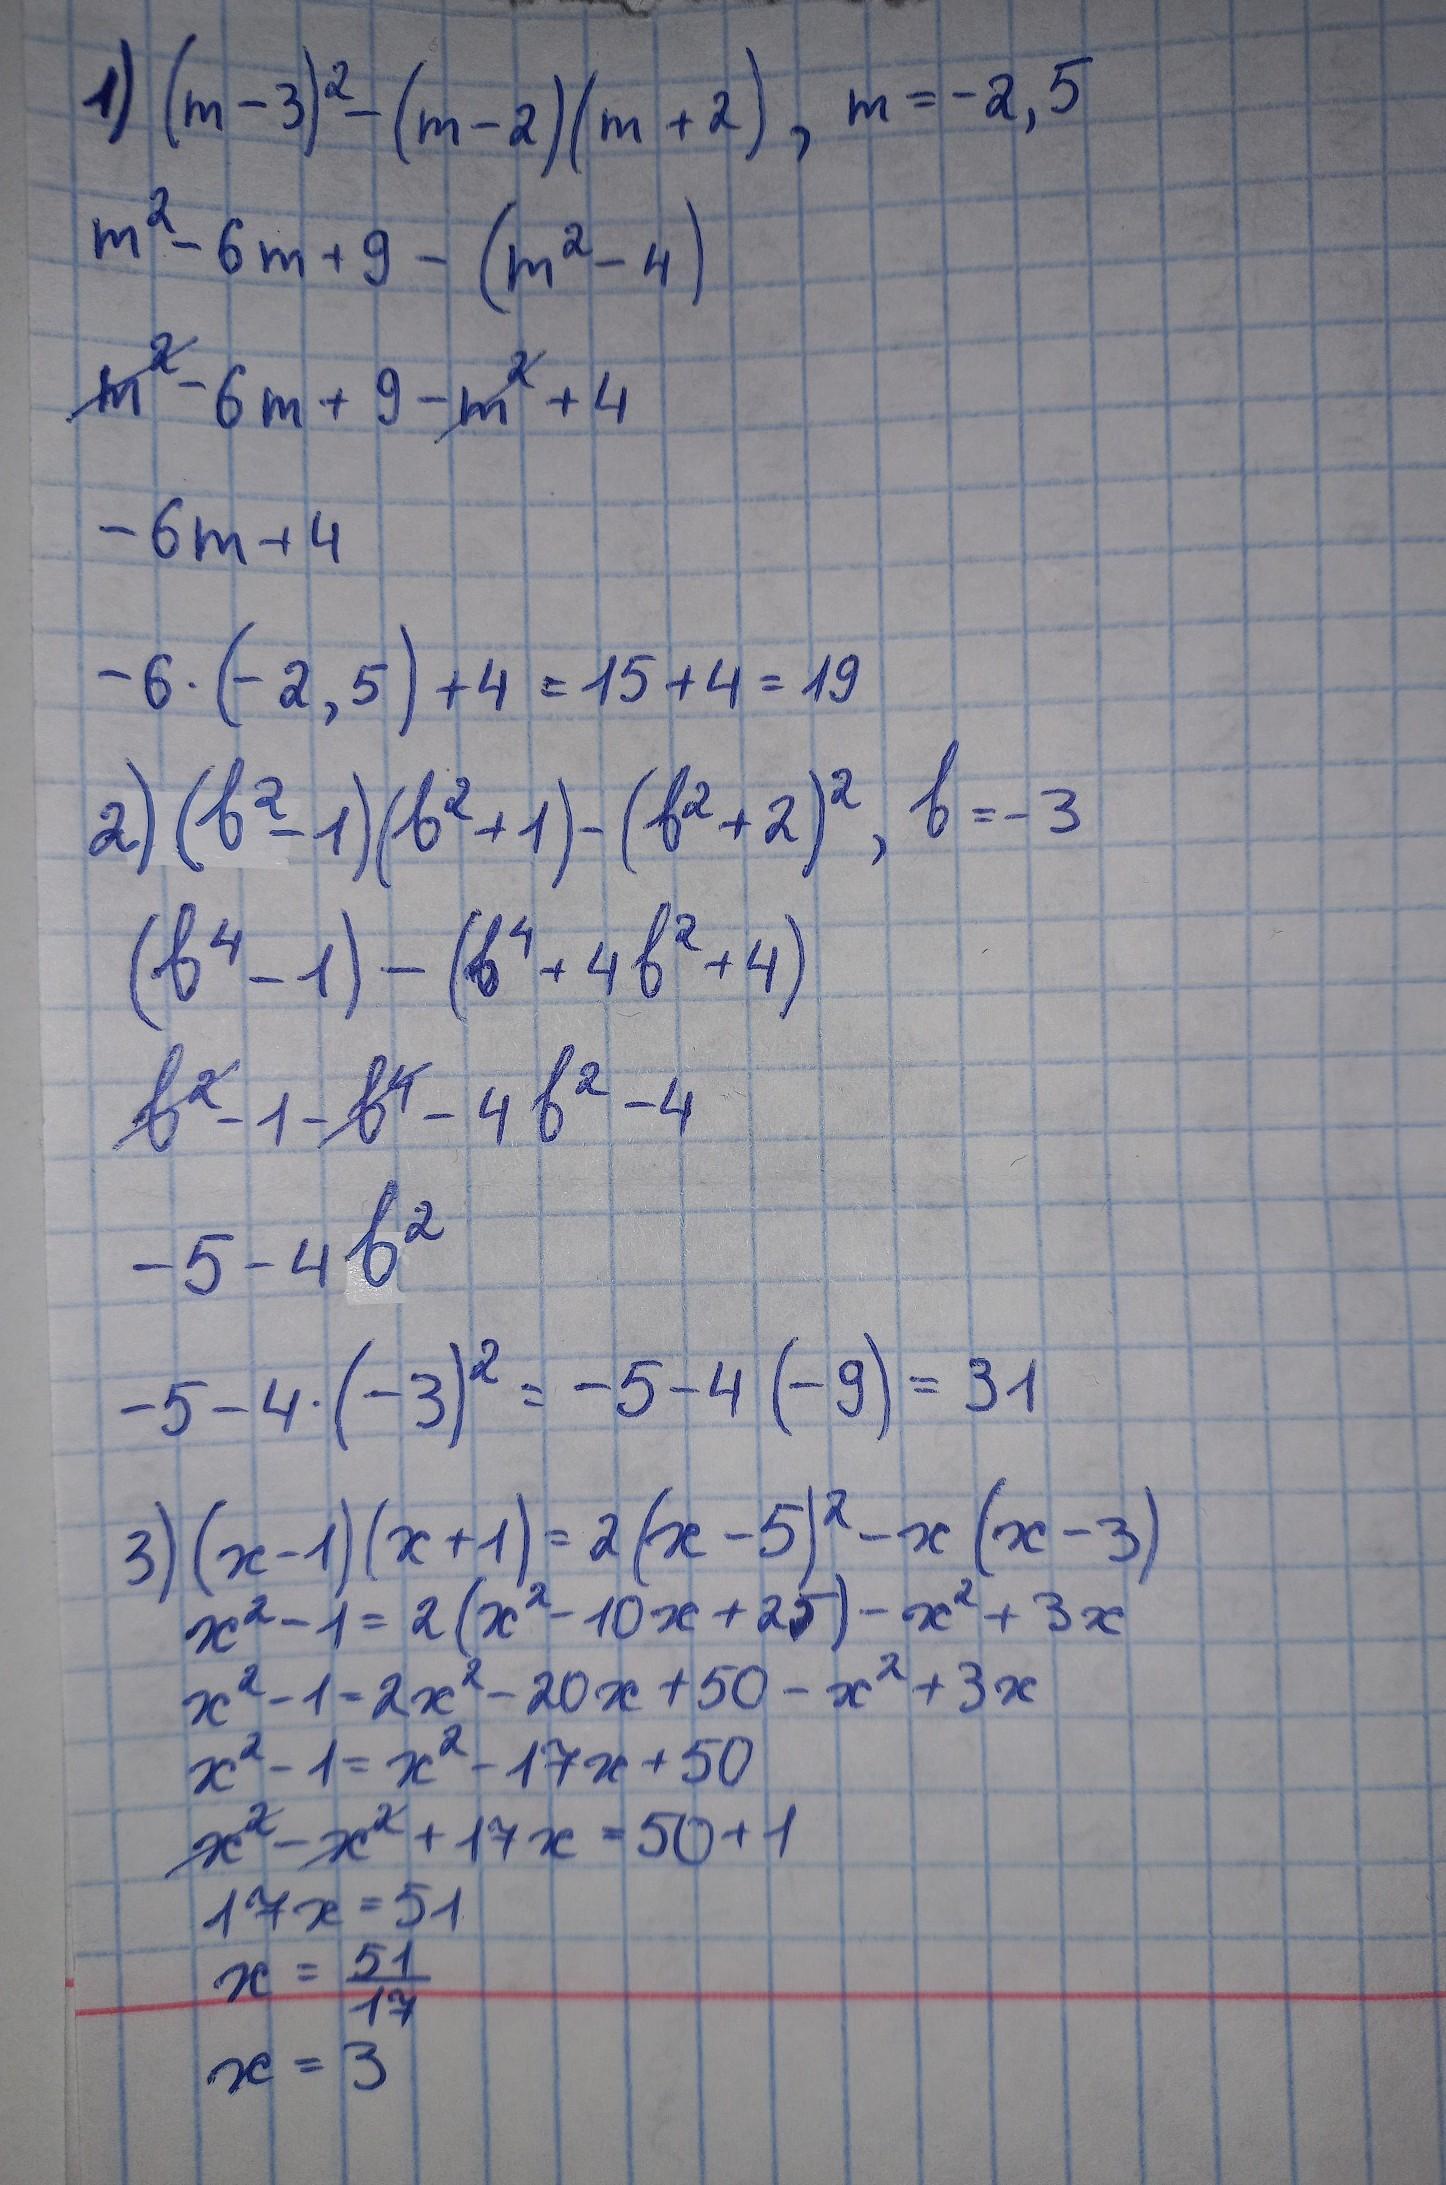 1) (m-3)²-(m-2)(m+2), m=-2,5
m²-6m+9-(m²-4)
m²-6m+9-m²+4
-6m+4
-6·(-2,5)+4=15+4=19
2) (b²-1)(b²+1)-(b²+2)², b=-3
(b⁴-1)-(b⁴+4b²+4)
b²-1-b⁴-4b²-4
-5-4b²
-5-4·(-3)²=-5-4(-9)=31
3) (x-1)(x+1)=2(x-5)²-x(x-3)
x²-1=2(x²-10x+25)-x²+3x
x²-1=2x²-20x+50-x²+3x
x²-1=x²-17x+50
x²-x²+17x=50+1
17x=51
x=51/17
x=3